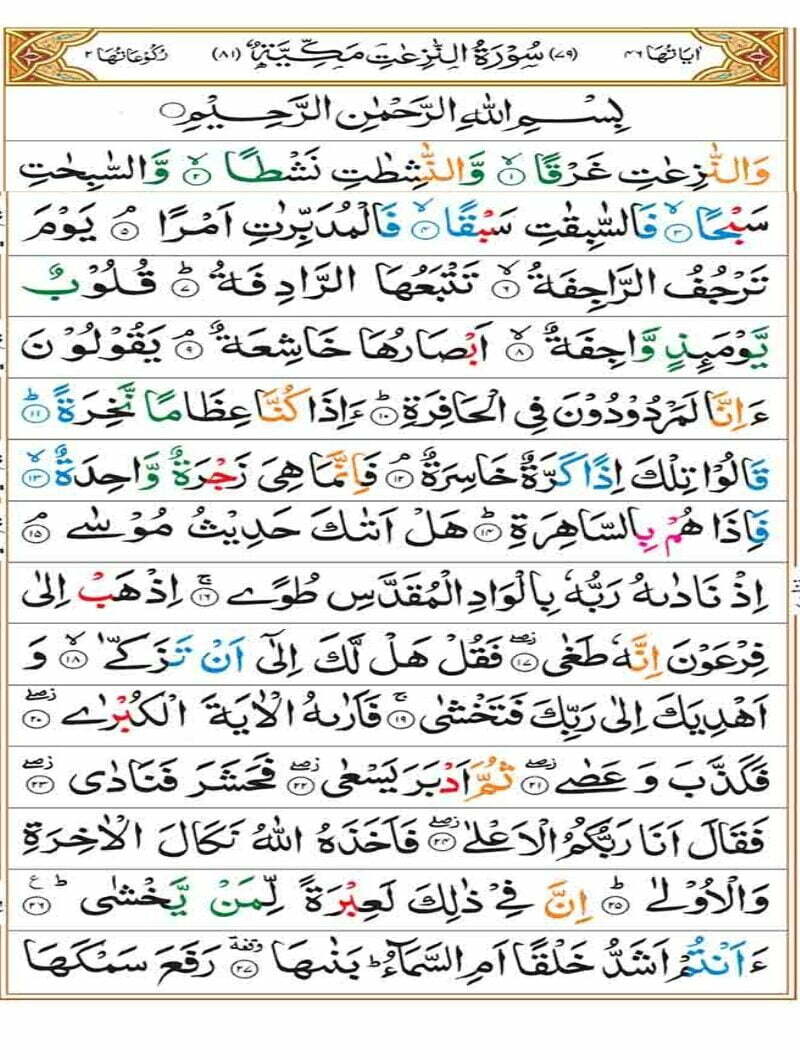 اٰیَاتُهَا ٤٦ (٧٩) سُوْرَةُ النّٰزِعٰتِ مَكِّیَّةٌ (٨١) رُكُوْعَاتُهَا ٢
بِسْمِ اللّٰهِ الرَّحْمٰنِ الرَّحِیْمِ
وَالنّٰزِعٰتِ غَرْقًاۙ‏﴿١﴾ وَّالنّٰشِطٰتِ نَشْطًاۙ‏﴿٢﴾ وَّالسّٰبِحٰتِ
سَبْحًاۙ‏﴿٣﴾ فَالسّٰبِقٰتِ سَبْقًاۙ‏﴿٤﴾ فَالْمُدَبِّرٰتِ اَمْرًاۘ‏﴿٥﴾ یَوْمَ
تَرْجُفُ الرَّاجِفَةُۙ‏﴿٦﴾ تَتْبَعُهَا الرَّادِفَةُؕ‏﴿٧﴾ قُلُوْبٌ
یَّوْمَىِٕذٍ وَّاجِفَةٌۙ‏﴿٨﴾ اَبْصَارُهَا خَاشِعَةٌۘ‏﴿٩﴾ یَقُوْلُوْنَ
ءَاِنَّا لَمَرْدُوْدُوْنَ فِی الْحَافِرَةِؕ‏﴿١٠﴾ ءَاِذَا كُنَّا عِظَامًا نَّخِرَةًؕ‏﴿١١﴾
قَالُوْا تِلْكَ اِذًا كَرَّةٌ خَاسِرَةٌۘ‏﴿١٢﴾ فَاِنَّمَا هِیَ زَجْرَةٌ وَّاحِدَةٌۙ‏﴿١٣﴾
فَاِذَا هُمْ بِالسَّاهِرَةِؕ‏﴿١٤﴾ هَلْ اَتٰىكَ حَدِیْثُ مُوْسٰیۘ‏﴿١٥﴾
اِذْ نَادٰىهُ رَبُّهٗ بِالْوَادِ الْمُقَدَّسِ طُوًیۚ‏﴿١٦﴾ اِذْهَبْ اِلٰی
فِرْعَوْنَ اِنَّهٗ طَغٰیؗۖ‏﴿١٧﴾ فَقُلْ هَلْ لَّكَ اِلٰۤی اَنْ تَزَكّٰیۙ‏﴿١٨﴾ وَ
اَهْدِیَكَ اِلٰی رَبِّكَ فَتَخْشٰیۚ‏﴿١٩﴾ فَاَرٰىهُ الْاٰیَةَ الْكُبْرٰیؗۖ‏﴿٢٠﴾
فَكَذَّبَ وَ عَصٰیؗۖ‏﴿٢١﴾ ثُمَّ اَدْبَرَ یَسْعٰیؗۖ‏﴿٢٢﴾ فَحَشَرَ فَنَادٰیؗۖ‏﴿٢٣﴾
فَقَالَ اَنَا رَبُّكُمُ الْاَعْلٰیؗۖ‏﴿٢٤﴾ فَاَخَذَهُ اللّٰهُ نَكَالَ الْاٰخِرَةِ
وَالْاُوْلٰیؕ‏﴿٢٥﴾ اِنَّ فِیْ ذٰلِكَ لَعِبْرَةً لِّمَنْ یَّخْشٰیؕ ع‏﴿٢٦﴾
ءَاَنْتُمْ اَشَدُّ خَلْقًا اَمِ السَّمَآءُؕ بَنٰىهَاوقفة‏﴿٢٧﴾ رَفَعَ سَمْكَهَا